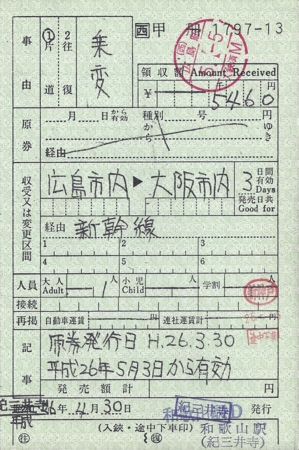 西 甲 冊 1797-13
事由
①片道
2往復
乗変
領収額 Amount Received
¥ 5460 円
原券
月 日から有効 種別 号
から 円 ゆき
経由
収受又は変更区間
広島市内 ▶ 大阪市内
3 日間有効 Days
発売日共 Good for
経由 新幹線
1 2 3
4 5 6
人員 大人 Adult 1 人 小児 Child 人 学割
接続
再掲 自動車運賃 円 連社運賃計 円
記事
原券発行日 H.26.3.30
平成26年5月3日から有効
発売額計 円
紀三井寺
平成 26年 4月30日 発行
紀三井寺
和歌山駅
(紀三井寺)
(入鋏・途中下車印)